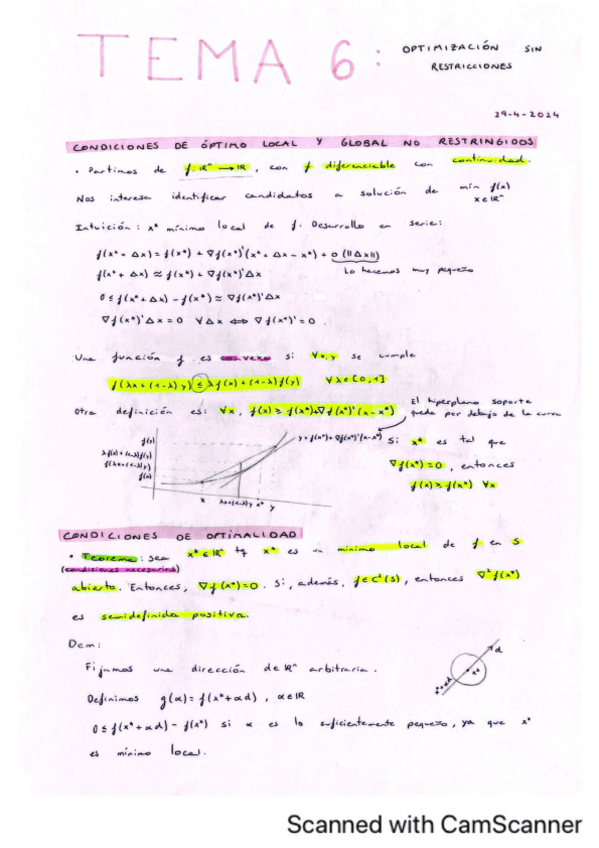 TEMA 6: OPTIMIZACIÓN SIN
RESTRICCIONES
29-4-2024
CONDICIONES DE ÓPTIMO LOCAL Y GLOBAL NO RESTRINGIDOS
• Partimos de f: ℝⁿ → ℝ, con f diferenciable con continuidad.
Nos interesa identificar candidatos a solución de mín f(x)
x∈ℝⁿ
Intuición: x* mínimo local de f. Desarrollo en serie:
f(x*+Δx) = f(x*) + ∇f(x*)'(x*+Δx-x*) + o(||Δx||)
f(x*+Δx) ≈ f(x*) + ∇f(x*)'Δx
Lo hacemos muy pequeño
0 ≤ f(x*+Δx) - f(x*) ≈ ∇f(x*)'Δx
∇f(x*)'Δx = 0 ∀Δx ⟺ ∇f(x*)' = 0.
Una función f es convexa si ∀x,y se cumple
f(λx+(1-λ)y) ≤ λf(x)+(1-λ)f(y) ∀λ∈[0,1]
Otra definición es: ∀x, f(x) ≥ f(x*)+∇f(x*)'(x-x*)
El hiperplano soporte
queda por debajo de la curva
f(y)
λf(x)+(1-λ)f(y)
f(λx+(1-λ)y)
f(x)
y=f(x*)+∇f(x*)'(x-x*)
x λx+(1-λ)y x* y
Si x* es tal que
∇f(x*)=0, entonces
f(x) ≥ f(x*) ∀x
CONDICIONES DE OPTIMALIDAD
• Teorema: sea x*∈ℝⁿ tq x* es un mínimo local de f en S
(condiciones necesarias)
abierto. Entonces, ∇f(x*)=0. Si, además, f∈C²(S), entonces ∇²f(x*)
es semidefinida positiva.
Dem:
Fijamos una dirección d∈ℝⁿ arbitraria.
Definimos g(α) = f(x*+αd), α∈ℝ
0 ≤ f(x*+αd) - f(x*) si α es lo suficientemente pequeño, ya que x*
es mínimo local.
d
x*
x*+αd
Scanned with CamScanner